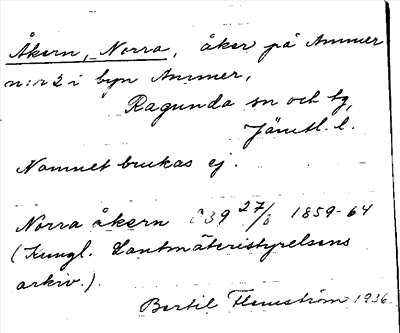 Åkern, Norra, åker på Ammer
n:r 2 i byn Ammer,
Ragunda sn och tg,
Jämtl. l.
Namnet brukas ej.
Norra åkern 39 27/8 1859-64
(Kungl. Lantmäteristyrelsens
arkiv.).
Bertil Flemström 1936.